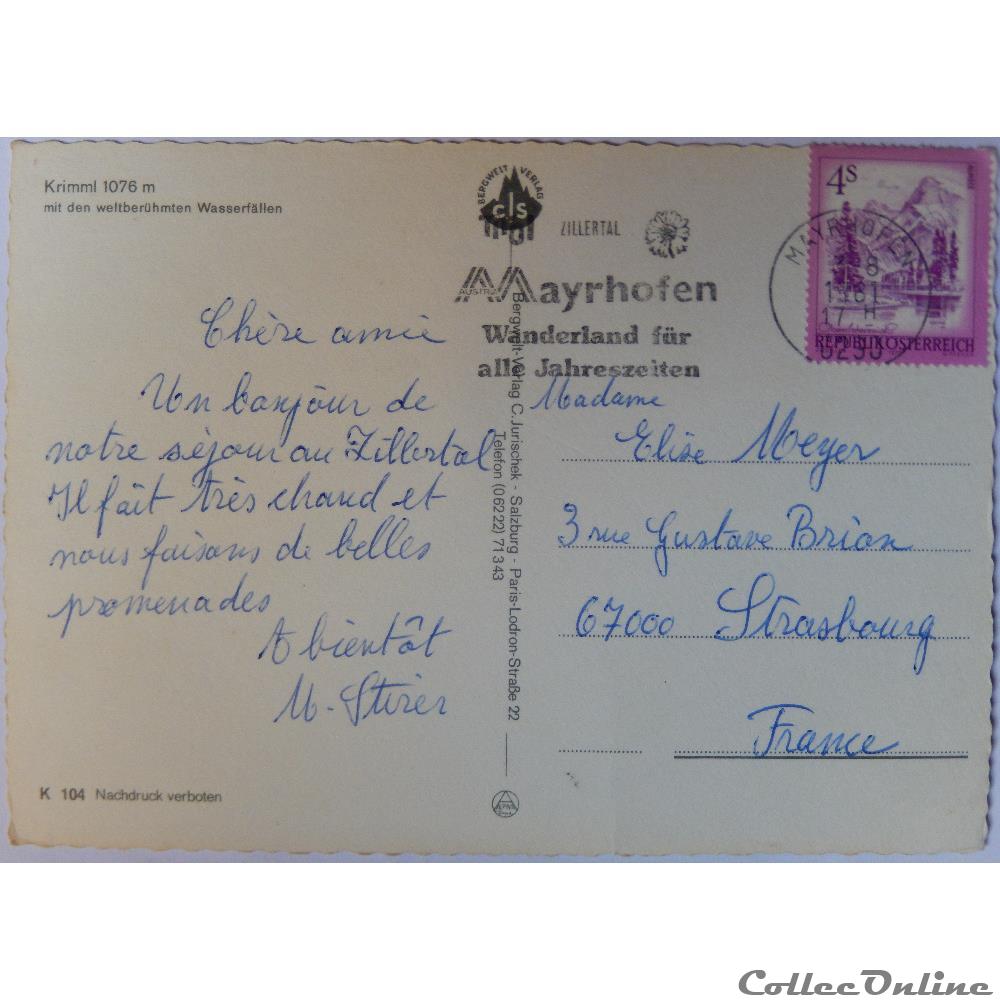 Krimml 1076 m
mit den weltberühmten Wasserfällen
BERGWELT VERLAG
CJS
Tirol ZILLERTAL
AUSTRIA
Mayrhofen
Wanderland für
alle Jahreszeiten
MAYRHOFEN
8
1981
17
6290
4S
REPUBLIK ÖSTERREICH
Chère amie
Un bonjour de
notre séjour au Zillertal
Il fait très chaud et
nous faisons de belles
promenades
A bientôt
Bergwelt-Verlag C. Jurischek - Salzburg - Paris-Lodron-Straße 22
Telefon (06222) 71343
Madame
Elise Meyer
3 rue Gustave Brion
67000 Strasbourg
France
K 104 Nachdruck verboten
CollecOnline